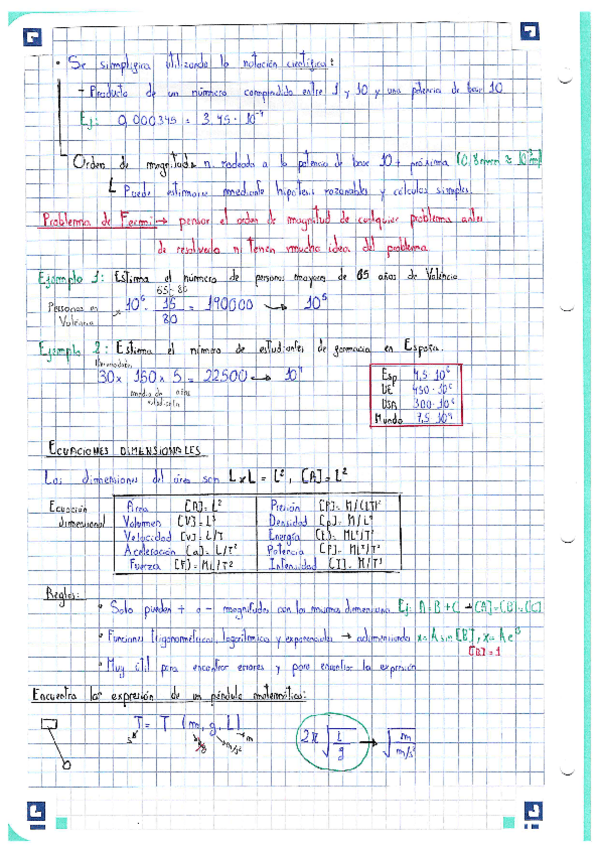 • Se simplifica utilizando la notación científica:
- Producto de un número comprendido entre 1 y 10 y una potencia de base 10.
Ej: 0,000345 = 3.45 · 10⁻⁴
Orden de magnitud: n. redondeado a la potencia de base 10 + próxima
Puede estimarse mediante hipótesis razonables y cálculos simples.
Problema de Fermi → pensar el orden de magnitud de cualquier problema antes
de resolverlo ni tener mucha idea del problema
Ejemplo 1: Estima el número de personas mayores de 65 años de Valéncia
65-80
Personas en Valéncia 10⁶ · 15 / 80 = 190000 → 10⁵
Ejemplo 2: Estima el número de estudiantes de farmacia en España.
30 x 150 x 5 = 22500 → 10⁴
media de años
Esp 4,5 10⁶
UE 450 · 10⁶
USA 300 · 10⁶
Mundo 7,5 10⁹
ECUACIONES DIMENSIONALES
Las dimensiones del área son L x L = L², [A] = L²
Ecuación dimensional
Área [A] = L² Presión [P] = M/(LT)²
Volumen [V] = L³ Densidad [ρ] = M/L³
Velocidad [v] = L/T Energía [E] = ML²/T²
Aceleración [a] = L/T² Potencia [P] = ML²/T³
Fuerza [F] = ML/T² Intensidad [I] = M/T³
Reglas:
• Solo pueden + o - magnitudes con las mismas dimensiones Ej: A = B + C → [A] = [B] = [C]
• Funciones trigonométricas, logarítmica y exponencial → adimensionada x = A sin [B], x = A e^B
[B] = 1
• Muy útil para encontrar errores y para encontrar la expresión
Encuentra la expresión de un péndulo matemático:
T = T (m, g, L)
s m/s² m
2π √(L/g) → √(m / m/s²)